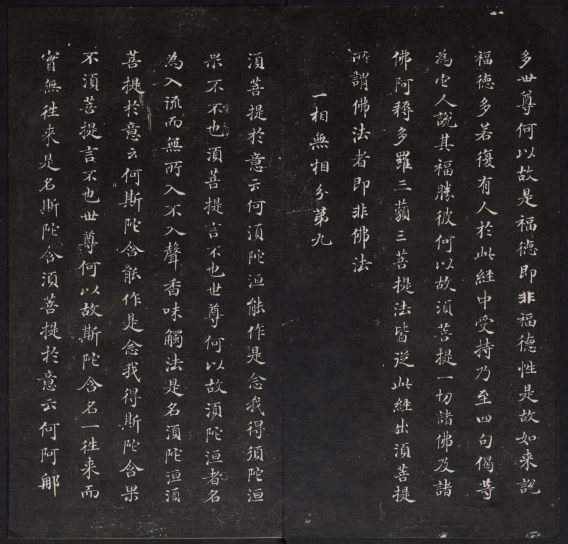 多世尊何以故是福德即非福德性是故如来說
福德多若復有人於此經中受持乃至四句偈等
為它人說其福勝彼何以故須菩提一切諸佛及諸
佛阿耨多羅三藐三菩提法皆從此經出須菩提
所謂佛法者即非佛法
一相無相分第九
須菩提於意云何須陀洹能作是念我得須陀洹
果不不也須菩提言不也世尊何以故須陀洹者名
為入流而無所入不入聲香味觸法是名須陀洹須
菩提於意云何斯陀含能作是念我得斯陀含果
不須菩提言不也世尊何以故斯陀含名一往来而
實無往来是名斯陀含須菩提於意云何阿那